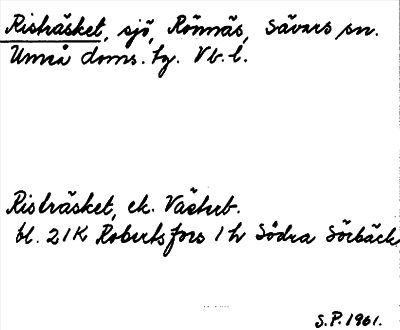 Risträsket, sjö, Rönnäs, Sävars sn.
Umeå doms. tg. Vb. l.
Risträsket, ek. Västerb.
bl. 21K Robertsfors 1 h Södra Sörbäck
S.P. 1961.